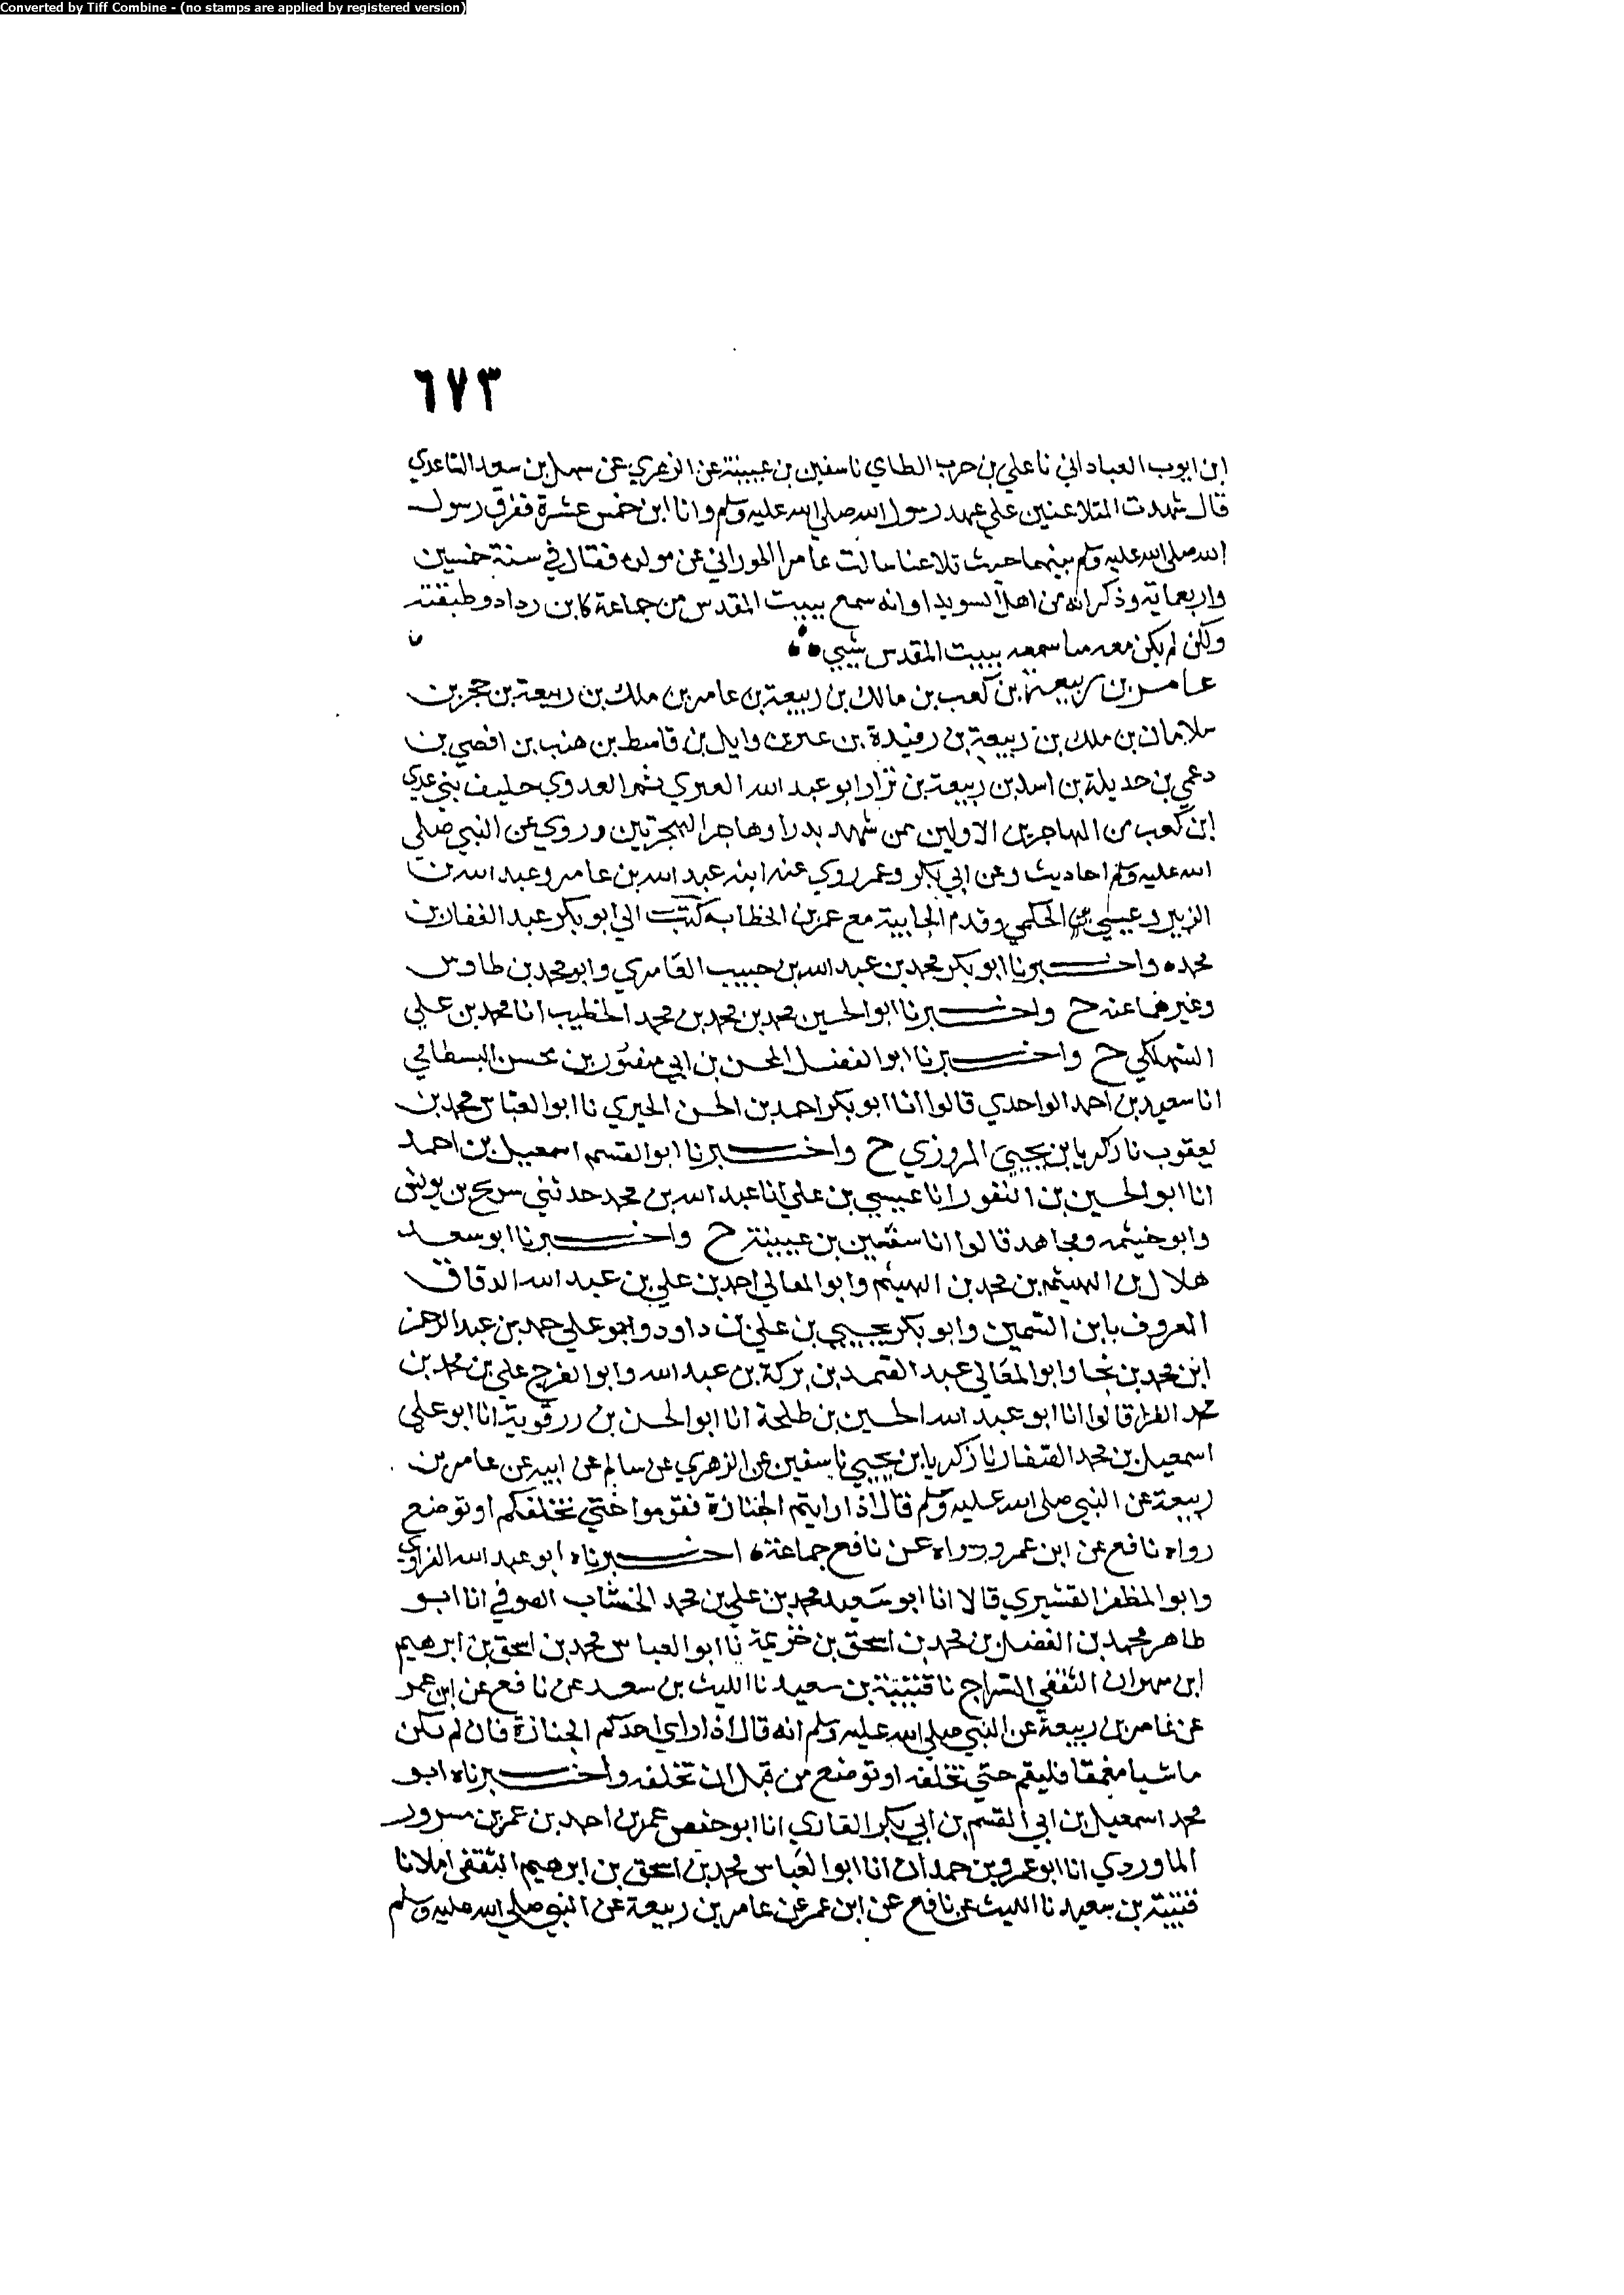 Converted by Tiff Combine - (no stamps are applied by registered version)
٦٧٣
ابن ايوب العباداني نا علي بن حرب الطاي نا سفين بن عيينة عن الزهري عن سهل بن سعد الساعدي
قال شهدت المتلاعنين علي عهد رسول الله صلي الله عليه وسلم وانا ابن خمس عشرة ففرق رسول
الله صلي الله عليه وسلم بينهما حيث تلاعنا سالت عامرا الحوراني عن مولده فقال في سنة خمسين
واربعماية وذكر انه من اهل السويدا وانه سمع ببيت المقدس من جماعة كابن رداد وطبقته
ولكن لم يكن معه مما سمعه ببيت المقدس شيي
عامر بن ربيعة بن كعب بن مالك بن ربيعة بن عامر بن ملك بن ربيعة بن حجر بن
سلامان بن ملك بن ربيعة بن رفيدة بن عنز بن وايل بن قاسط بن هنب بن افصي بن
دعمي بن جديلة بن اسد بن ربيعة بن نزار ابو عبد الله العنزي ثم العدوي حليف بني عدي
ابن كعب من المهاجرين الاولين ممن شهد بدرا وهاجر الهجرتين وروي عن النبي صلي
الله عليه وسلم احاديث وعن ابي بكر وعمر روي عنه ابنه عبد الله بن عامر وعبد الله بن
الزبير وعيسي بن الحكمي وقدم الجابية مع عمر بن الخطاب كتب الي ابو بكر عبد الغفار بن
محمد واخبرنا ابو بكر محمد بن عبد الله بن حبيب العامري وابو محمد بن طاوس
وغيرهما عنه ح واخبرنا ابو الحسين محمد بن محمد بن محمد الخطيب انا محمد بن علي
السهلكي ح واخبرنا ابو الفضل المحسن بن ابي منصور بن محسن البسطامي
انا سعيد بن احمد الواحدي قالوا انا ابو بكر احمد بن الحسن الحيري نا ابو العباس محمد بن
يعقوب نا زكريا بن يحيي المروزي ح واخبرنا ابو القسم اسمعيل بن احمد
انا ابو الحسين بن النقور انا عيسي بن علي انا عبد الله بن محمد حدثني سريج بن يونس
وابو خيثمه ومجاهد قالوا انا سفين بن عيينة ح واخبرنا ابو سعد
هلال بن الهيثم بن محمد بن الهيثم وابو المعالي احمد بن علي بن عبد الله الدقاق
المعروف بابن السمين وابو بكر يحيي بن علي بن داود وابو علي حمد بن عبد الرحمن
ابن محمد بن نجا وابو المعالي عبد الصمد بن بركة بن عبد الله وابو الفرج علي بن محمد بن
محمد الفرا قالوا انا ابو عبد الله الحسين بن طلحة انا ابو الحسن بن رزقوية انا ابو علي
اسمعيل بن محمد الصفار نا زكريا بن يحيي نا سفين عن الزهري عن سالم عن ابيه عن عامر بن
ربيعة عن النبي صلي الله عليه وسلم قال اذا رايتم الجنازة فقوموا حتي تخلفكم او توضع
رواه نافع عن ابن عمر ورواه عن نافع جماعة اخبرناه ابو عبد الله الفراوي
وابو المظفر القشيري قالا انا ابو سعيد محمد بن علي بن محمد الخشاب الصوفي انا ابو
طاهر محمد بن الفضل بن محمد بن اسحق بن خزيمة نا ابو العباس محمد بن اسحق بن ابرهيم
ابن مهران الثقفي السراج نا قتيبة بن سعيد نا الليث بن سعد عن نافع عن ابن عمر
عن عامر بن ربيعة عن النبي صلي الله عليه وسلم انه قال اذا راي احدكم الجنازة فان لم يكن
ماشيا معها فليقم حتي تخلفه او توضع من قبل ان تخلفه واخبرناه ابو
محمد اسمعيل بن ابي القسم بن ابي بكر القاري انا ابو حفص عمر بن احمد بن عمر بن مسرور
الماوردي انا ابو عمرو بن حمدان انا ابو العباس محمد بن اسحق بن ابرهيم الثقفي املا نا
قتيبة بن سعيد نا الليث عن نافع عن ابن عمر عن عامر بن ربيعة عن النبي صلي الله عليه وسلم